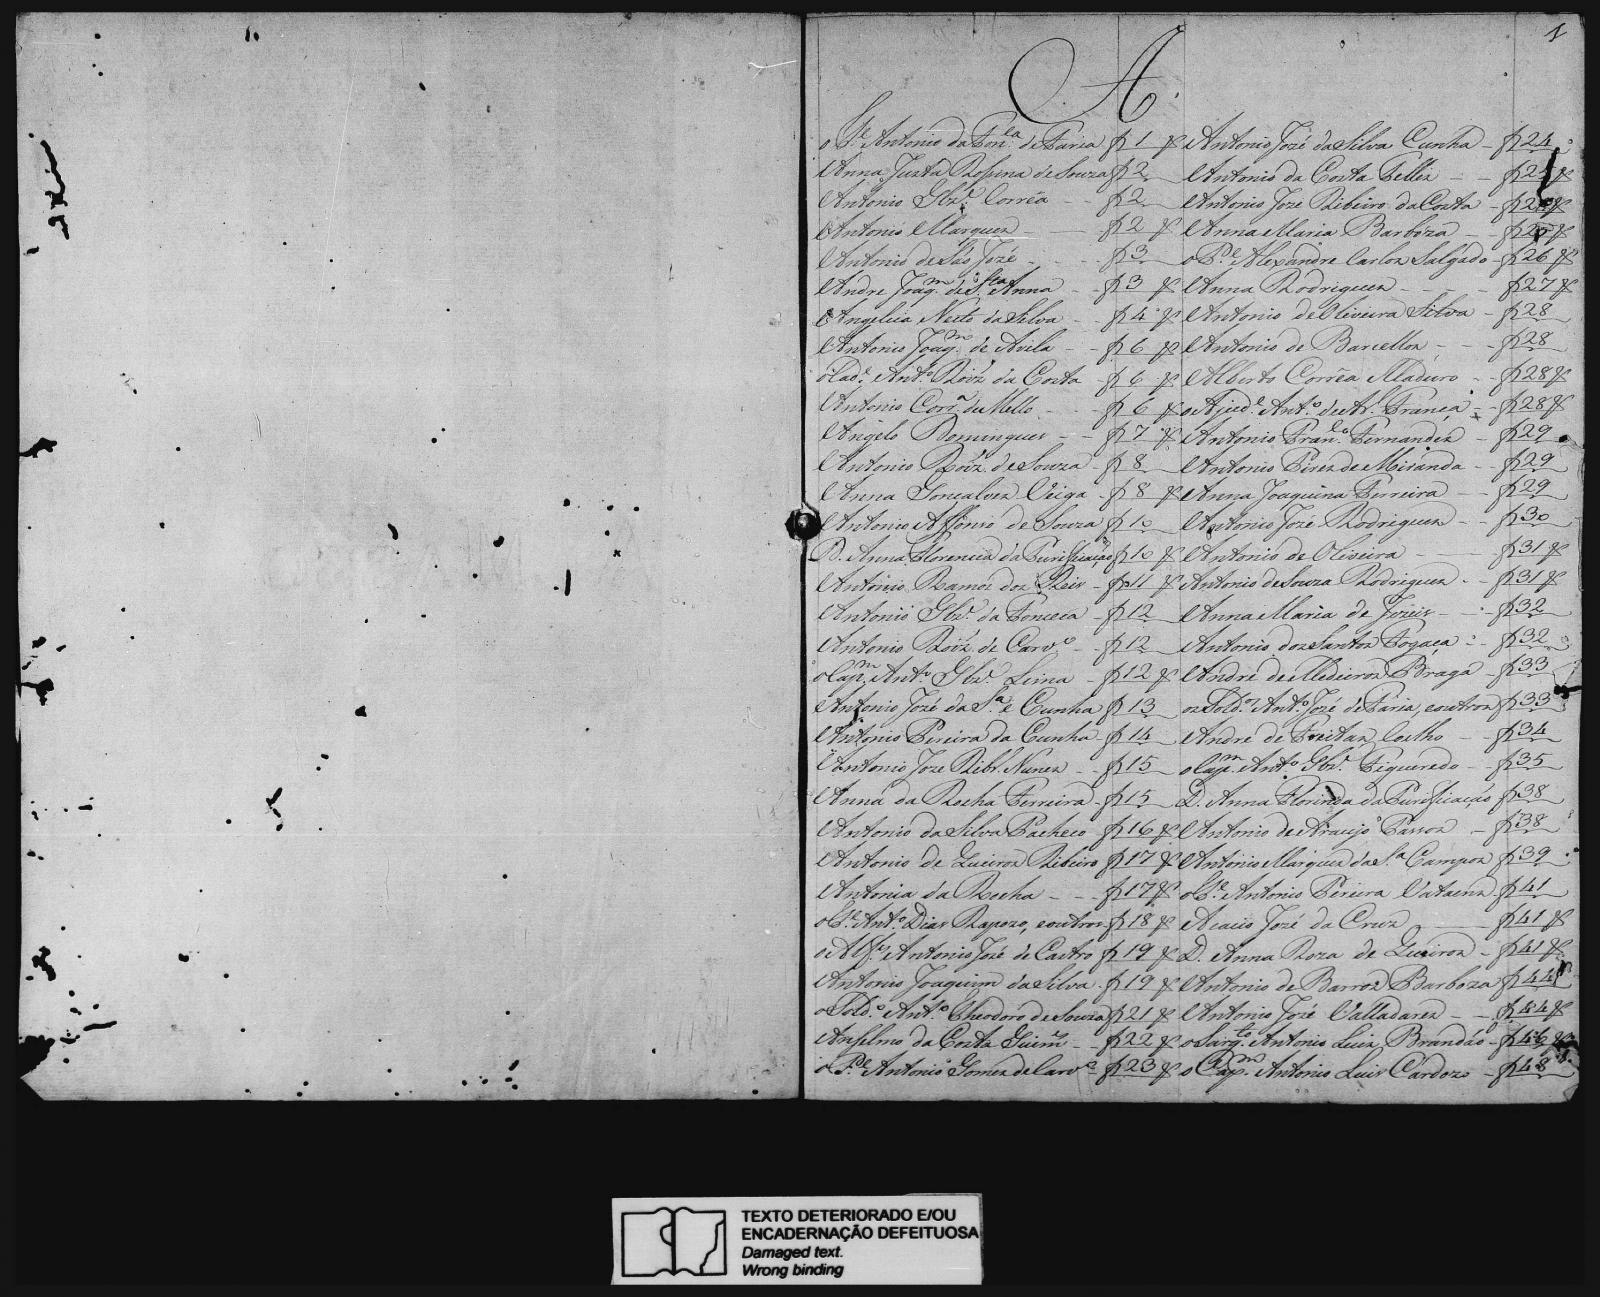 1
A.
o P.e Antonio da Fon.ca de Faria f 1
Anna Justa Rosuna de Souza f 2
Antonio Glz.' Corrêa - - f 2
Antonio Marques - f 2
Antonio de São José - - f 3
Andre Joaq.m de S.ta Anna - f 3
Angelica Neto da Silva - f 4
Antonio Joaq.m de Avila - - f 6
o Cad.e Ant.o Roiz' da Costa - f 6
Antonio Corr.a de Mello - f 6
Angelo Domingues - - f 7
Antonio Roiz' de Souza - f 8
Anna Gonçalves Veiga - f 8
Antonio Affonso de Souza f 10
D. Anna Florencia da Purificação f 10
Antonio Ramos dos Reis - f 11
Antonio Glz.' da Fonceca - f 12
Antonio Roiz' de Carv.o - f 12
o Cap.m Ant.o Glz' Lima - f 12
Antonio José da S.a e Cunha f 13
Antonio Pereira da Cunha f 14
Antonio Jose Ribr. Nunes - f 15
Anna da Rocha Ferreira - f 15
Antonio da Silva Pacheco f 16
Antonio de Queiros Ribeiro f 17
Antonia da Rocha - - f 17
Ant.o Dias Raposo, e outros f 18
o Alf.s Antonio José de Castro f 19
Antonio Joaquim da Silva f 19
o Sold.o Ant.o Theodoro de Souza f 21
Anselmo da Costa Guim.es - f 22
o P.e Antonio Gomes de Carv.o f 23
Antonio José da Silva Cunha - f 24
Antonio da Costa Telles - - f 24
Antonio Jose Ribeiro da Costa - f
Anna Maria Barboza - - f
o P.e Alexandre Carlos Salgado f 26
Anna Rodrigues - - - f 27
Antonio de Oliveira Silva - f 28
Antonio de Barcellos - - f 28
Alberto Corrêa Maduro - - f 28
o Ajud.e Ant.o de Ar.' França - f 28
Antonio Fran.co Fernandes - f 29
Antonio Pires de Miranda - f 29
Anna Joaquina Ferreira - f 29
Antonio José Rodrigues - - f 30
Antonio de Oliveira - f 31
Antonio de Souza Rodrigues - f 31
Anna Maria de - f 32
Antonio dos Santos Fogaça - f 32
André de Medeiros Braga - f 33
os Sold.os Ant.o José de Faria, e outros f 33
André de Freitas Coelho - f 34
o Cap.m Ant.o Glz.' Figueredo - f 35
D. Anna Florinda da Purificação f 38
Antonio de Araujo Passos - f 38
Antonio Marques da S.a Campos f 39
Antonio Pereira f 41
Acacio José da Cruz f 41
D. Anna Roza de Queiros - f 41
Antonio de Barros Barboza f 44
Antonio José Valladares - - f 44
o Sarg.to Antonio Luis Brandão - f 46
o Cap.m Antonio Luis Cardozo - f 48
TEXTO DETERIORADO E/OU
ENCADERNAÇÃO DEFEITUOSA
Damaged text.
Wrong binding